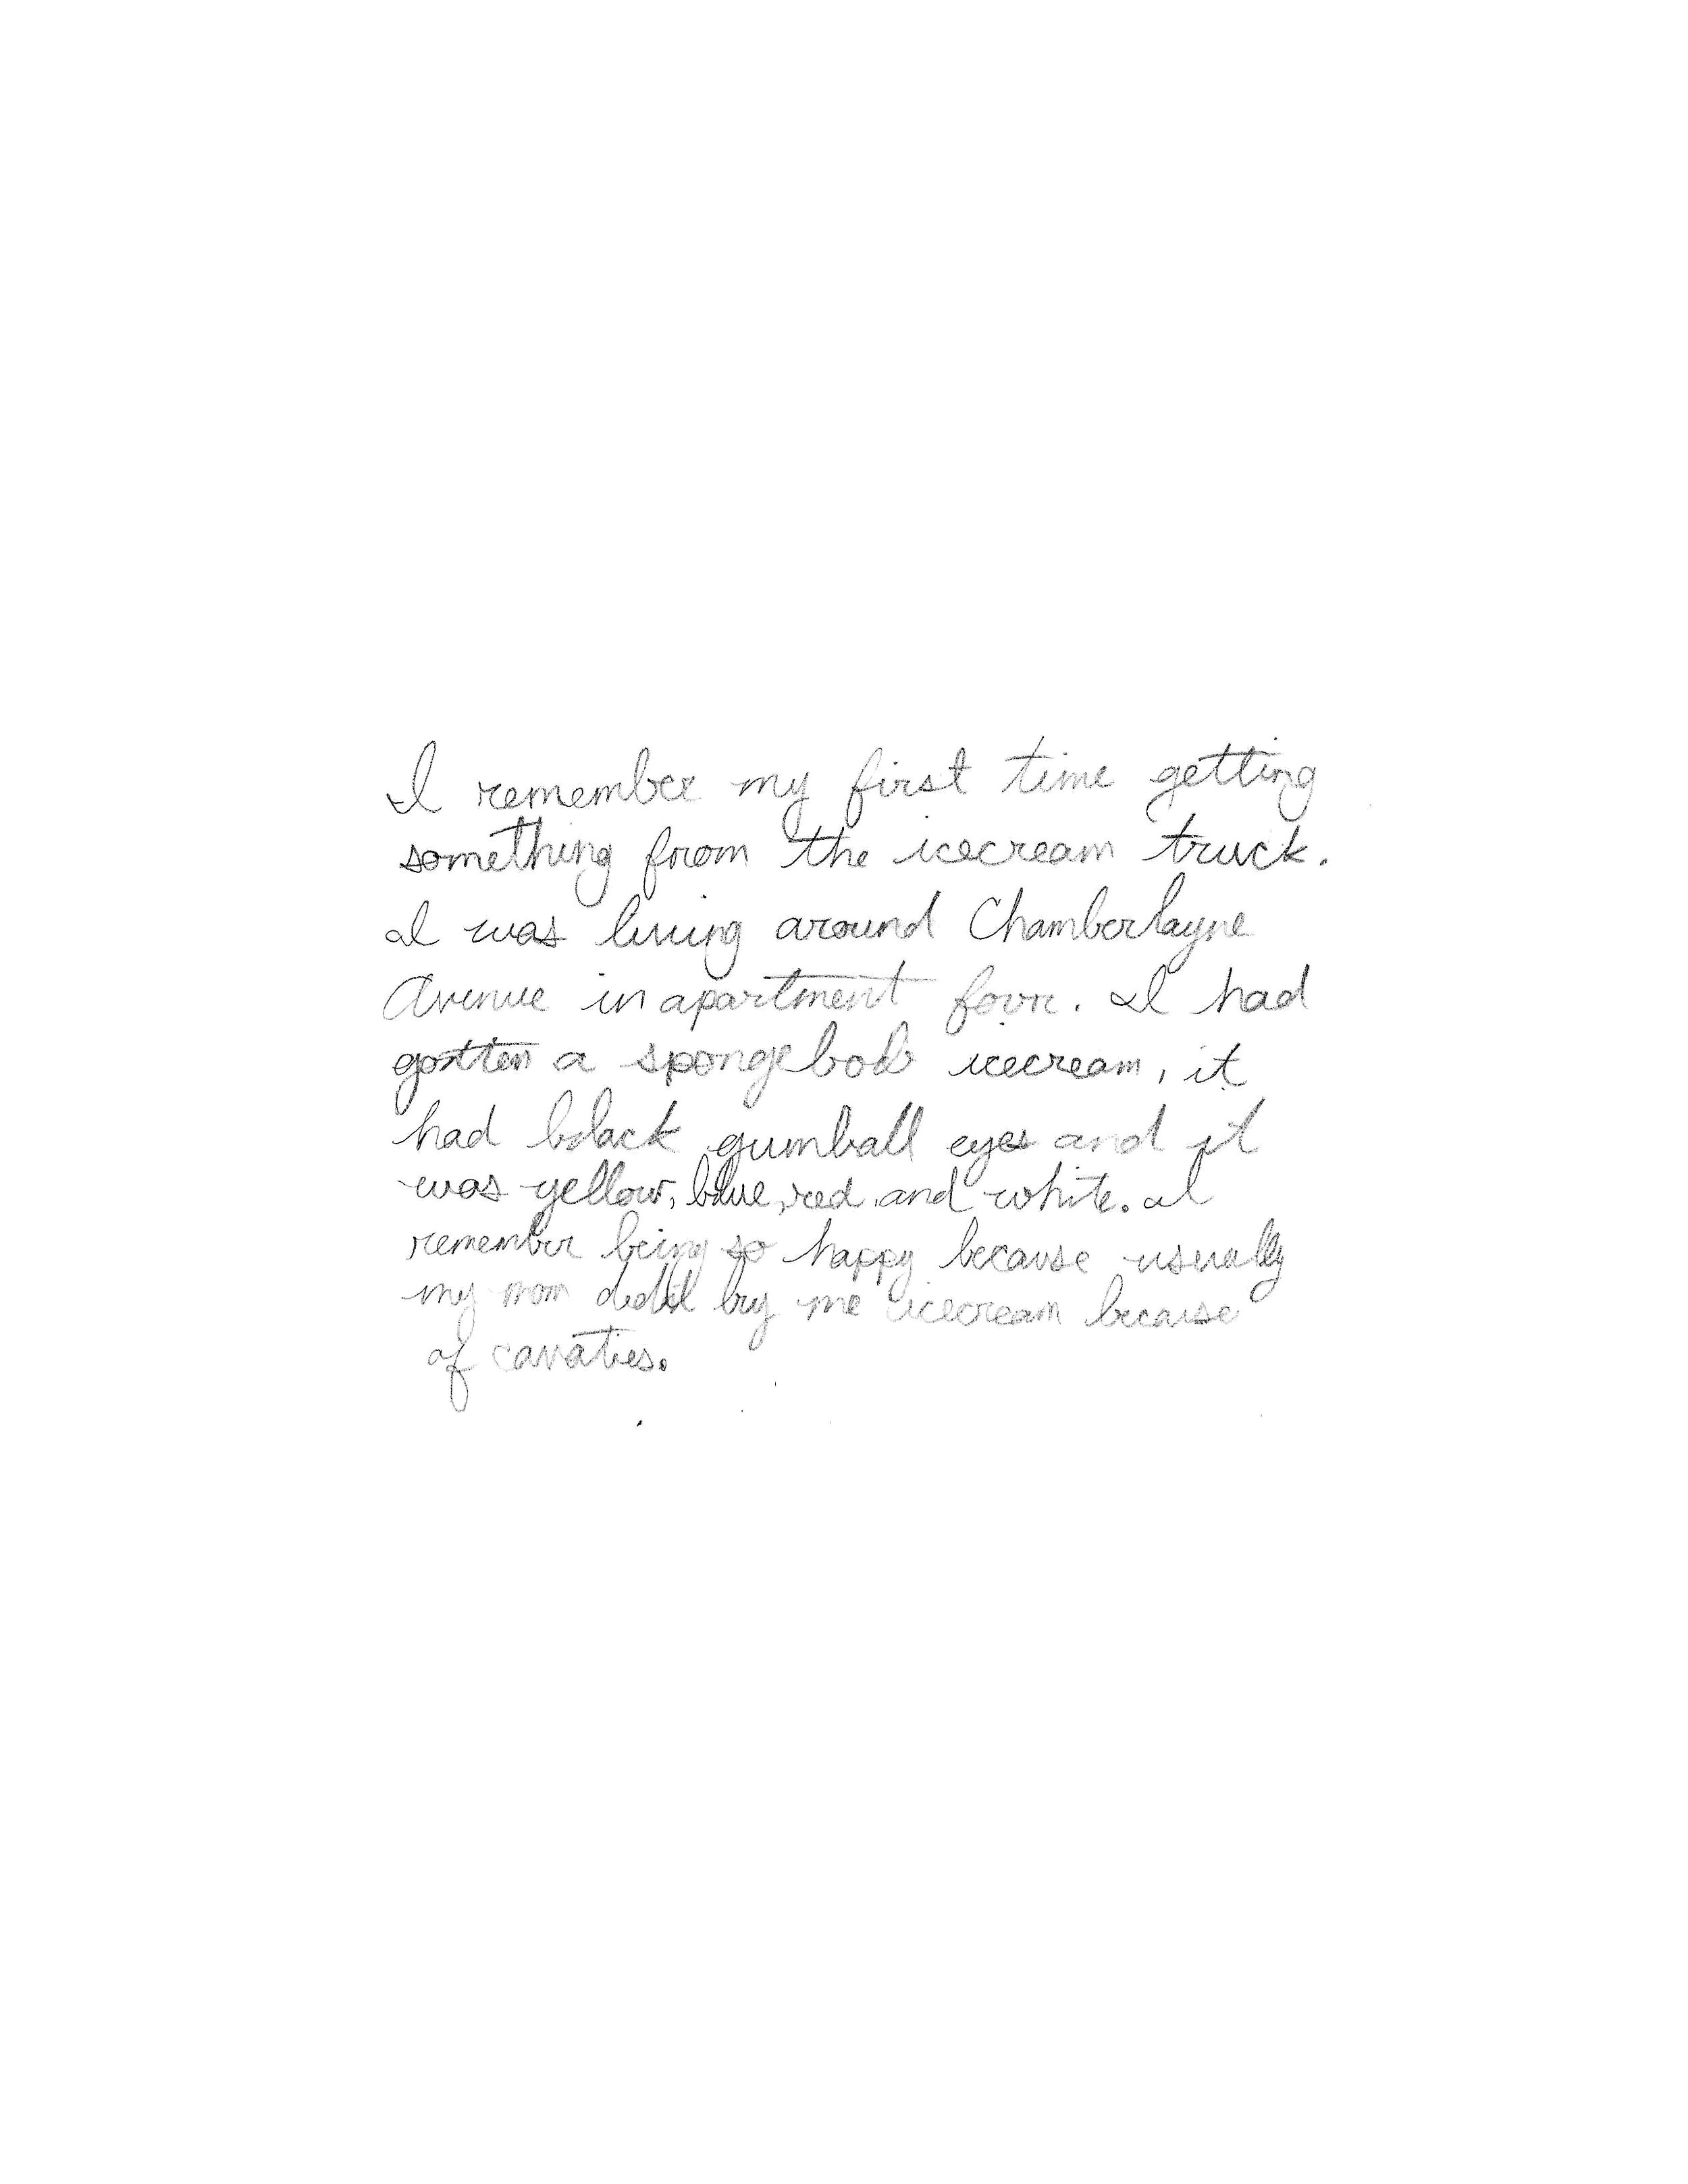 I remember my first time getting
something from the icecream truck.
I was living around Chamberlayne
Avenue in apartment four. I had
gotten a spongebob icecream, it
had black gumball eyes and it
was yellow, blue, red, and white. I
remember being so happy because usually
my mom didn't buy me icecream because
of cavaties.